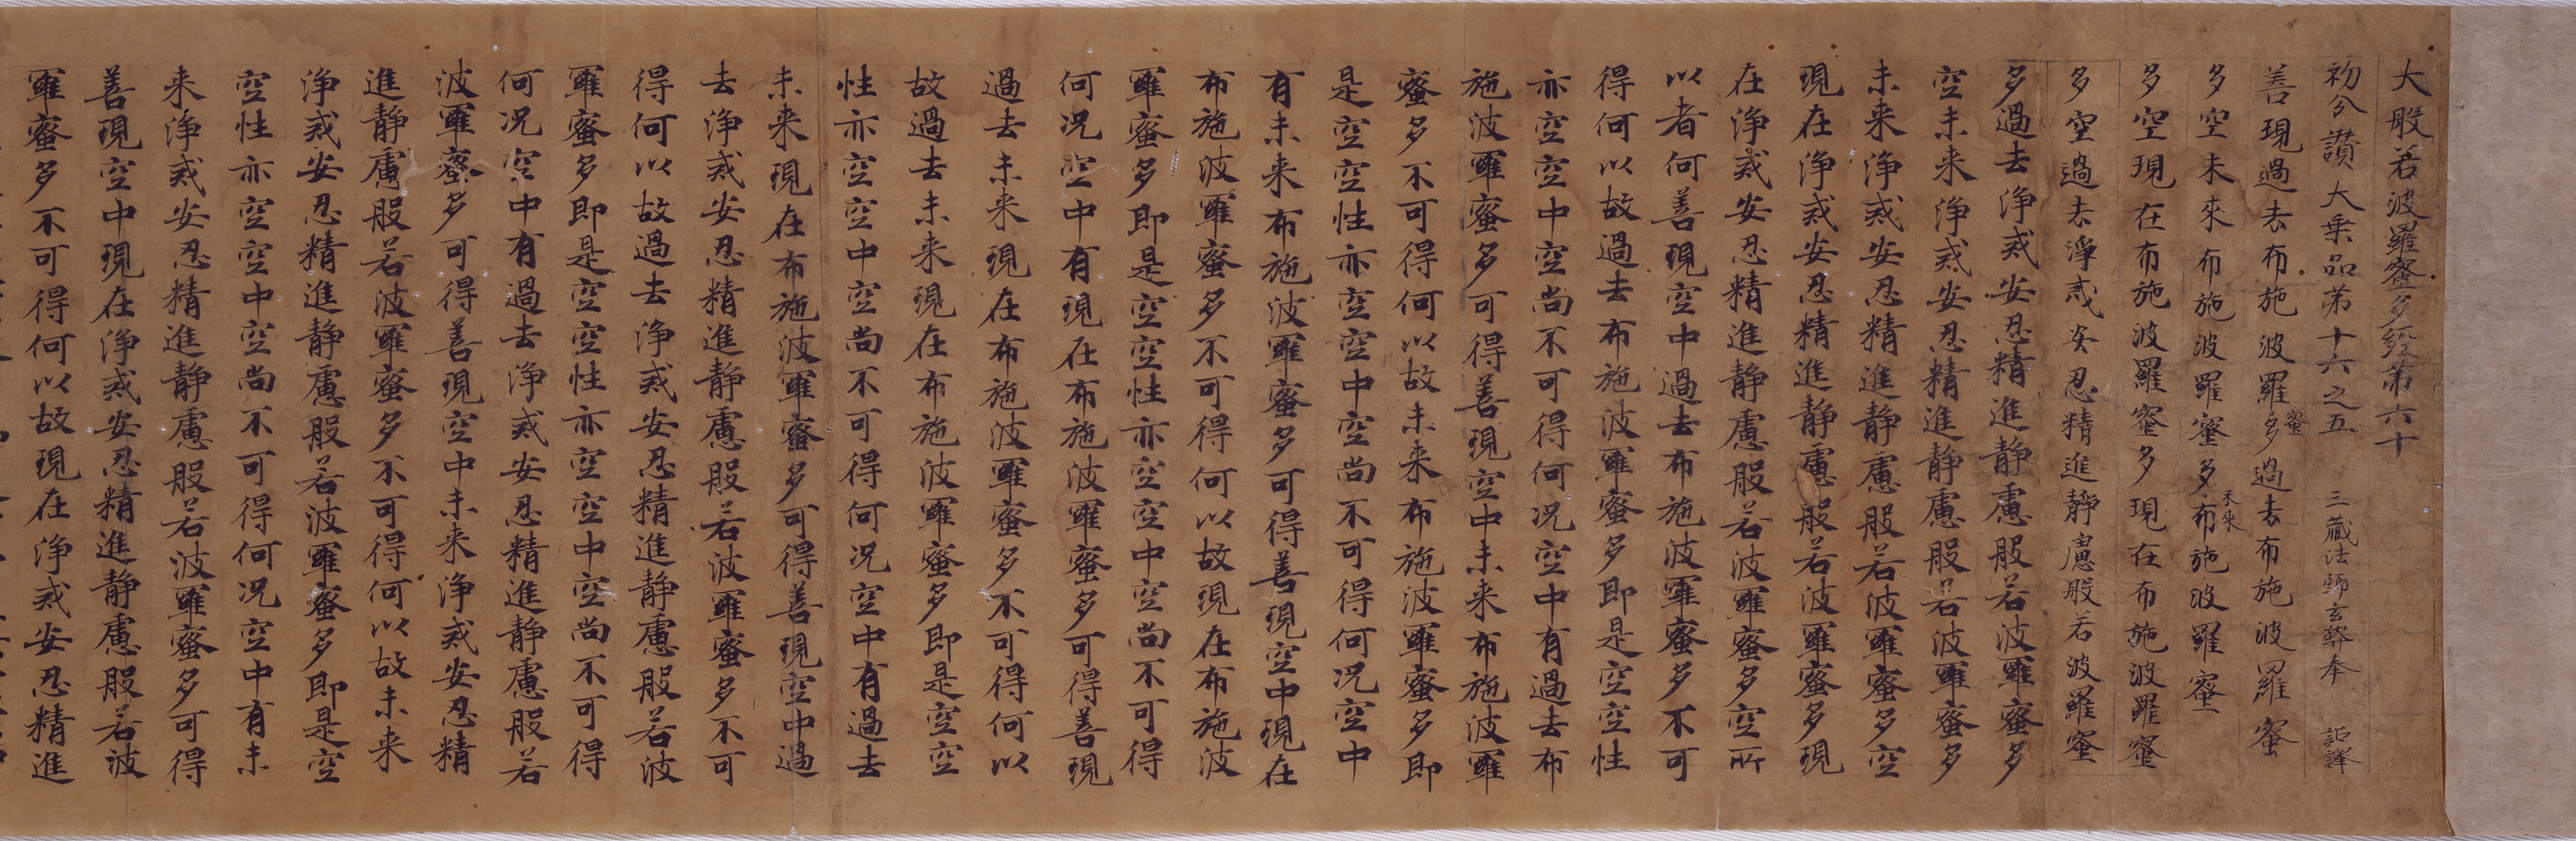 大般若波羅蜜多経第六十
初分讃大乗品第十六之五 三蔵法師玄奘奉 詔譯
善現過去布施波羅蜜多過去布施波羅蜜
多空未來布施波羅蜜多未來布施波羅蜜
多空現在布施波羅蜜多現在布施波羅蜜
多空過去淨戒安忍精進靜慮般若波羅蜜
多過去淨戒安忍精進靜慮般若波羅蜜多
空未来淨戒安忍精進靜慮般若波羅蜜多
未来淨戒安忍精進靜慮般若波羅蜜多空
現在淨戒安忍精進靜慮般若波羅蜜多現
在淨戒安忍精進靜慮般若波羅蜜多空所
以者何善現空中過去布施波羅蜜多不可
得何以故過去布施波羅蜜多即是空空性
亦空空中空尚不可得何況空中有過去布
施波羅蜜多可得善現空中未来布施波羅
蜜多不可得何以故未来布施波羅蜜多即
是空空性亦空空中空尚不可得何況空中
有未来布施波羅蜜多可得善現空中現在
布施波羅蜜多不可得何以故現在布施波
羅蜜多即是空空性亦空空中空尚不可得
何況空中有現在布施波羅蜜多可得善現
過去未来現在布施波羅蜜多不可得何以
故過去未来現在布施波羅蜜多即是空空
性亦空空中空尚不可得何況空中有過去
未来現在布施波羅蜜多可得善現空中過
去淨戒安忍精進靜慮般若波羅蜜多不可
得何以故過去淨戒安忍精進靜慮般若波
羅蜜多即是空空性亦空空中空尚不可得
何況空中有過去淨戒安忍精進靜慮般若
波羅蜜多可得善現空中未来淨戒安忍精
進靜慮般若波羅蜜多不可得何以故未来
淨戒安忍精進靜慮般若波羅蜜多即是空
空性亦空空中空尚不可得何況空中有未
来淨戒安忍精進靜慮般若波羅蜜多可得
善現空中現在淨戒安忍精進靜慮般若波
羅蜜多不可得何以故現在淨戒安忍精進